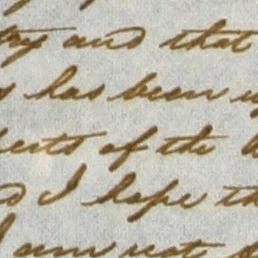 try and that
has been
of the
I hope th
I am not